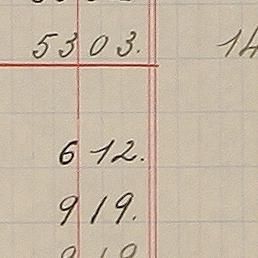 5303. 14
612.
919.